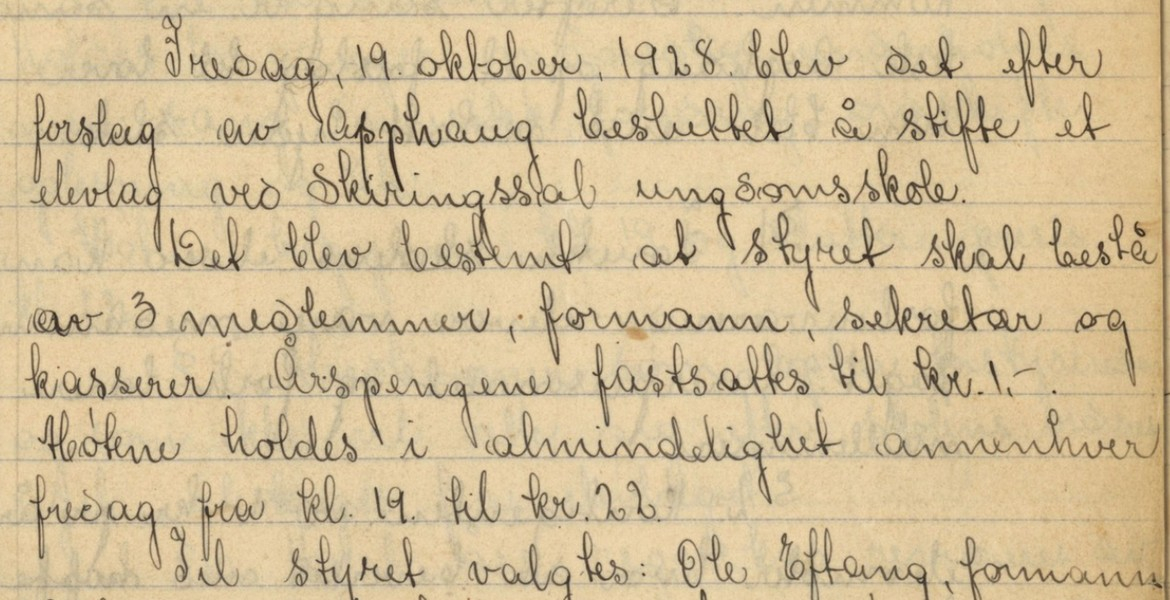 Fredag, 19. oktober, 1928. blev det efter
forslag av Apphaug besluttet å stifte et
elevlag ved Skiringssal ungdomsskole.
Det blev bestemt at styret skal bestå
av 3 medlemmer, formann, sekretær og
kasserer. Årspengene fastsattes til kr. 1,-.
Møtene holdes i almindelighet annenhver
fredag fra kl. 19. til kr. 22.
Til styret valgtes: Ole Eftang, formann